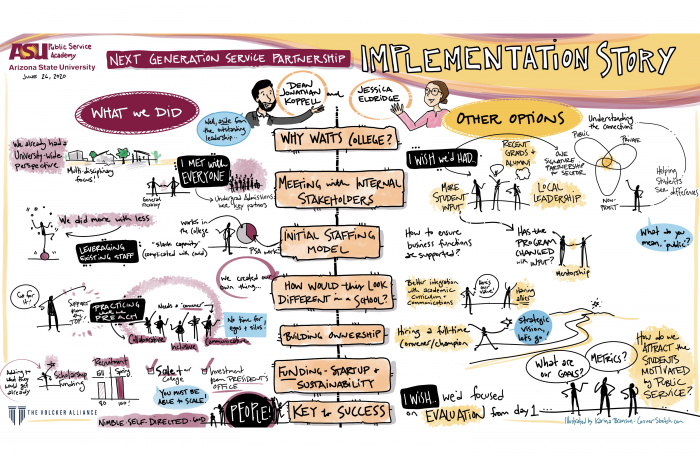 ASU Public Service
Academy
Arizona State University
JUNE 26, 2020
NEXT GENERATION SERVICE PARTNERSHIP
IMPLEMENTATION STORY
DEAN
JONATHAN
KOPPELL
and
JESSICA
ELDRIDGE
WHAT we DID
Well, aside from
the outstanding
leadership...
OTHER OPTIONS
WHY WATTS COLLEGE?
We already had a
University-wide
perspective
Multi-disciplinary
focus!
I MET with
EVERYONE
General
Undergrad Admissions
key partners
MEETING with INTERNAL
STAKEHOLDERS
I WISH we'd HAD...
RECENT
GRADS +
ALUMNI
MORE
STUDENT
INPUT
ONE
SIGNATURE
PARTNERSHIP
by SECTOR
LOCAL
LEADERSHIP
Understanding
the connections
Public
Private
NON-
PROFIT
Helping
students
see differences
What do you
mean, "public"?
We did more with less
LEVERAGING
EXISTING STAFF
works in
the college
"slack capacity"
(complicated with covid)
PSA work
INITIAL STAFFING
MODEL
How to ensure
business functions
are supported?
HAS the
PROGRAM
CHANGED
with INPUT?
Mentorship
We created our
own thing...
HOW WOULD this LOOK
DIFFERENT in a SCHOOL?
Better integration
with academic
curriculum +
communications
Here's
our value!
Having
allies
Go for it!
SUPPORT
from the
TOP
PRACTICING
what we
PREACH
Needs a "convener"
Collaborative
Inclusive
Communicative
No time for
egos + silos.
BUILDING OWNERSHIP
Hiring a full-time
convener/champion
Strategic
vision,
let's go!
Adding to
what they
could get
already
Scholarship
funding
Recruitment
Fall
Spring
80
100!
Scale to our
College
YOU MUST BE
ABLE to SCALE!
Investment
from PRESIDENT'S
OFFICE
FUNDING - STARTUP +
SUSTAINABILITY
What are
our GOALS?
METRICS?
HOW do we
ATTRACT the
STUDENTS
MOTIVATED
by PUBLIC
SERVICE?
THE VOLCKER ALLIANCE
NIMBLE · SELF-DIRECTED
PEOPLE!
KEY to SUCCESS
I WISH... we'd focused
on EVALUATION from day 1
Illustrated by Karina Branson - ConverSketch.com